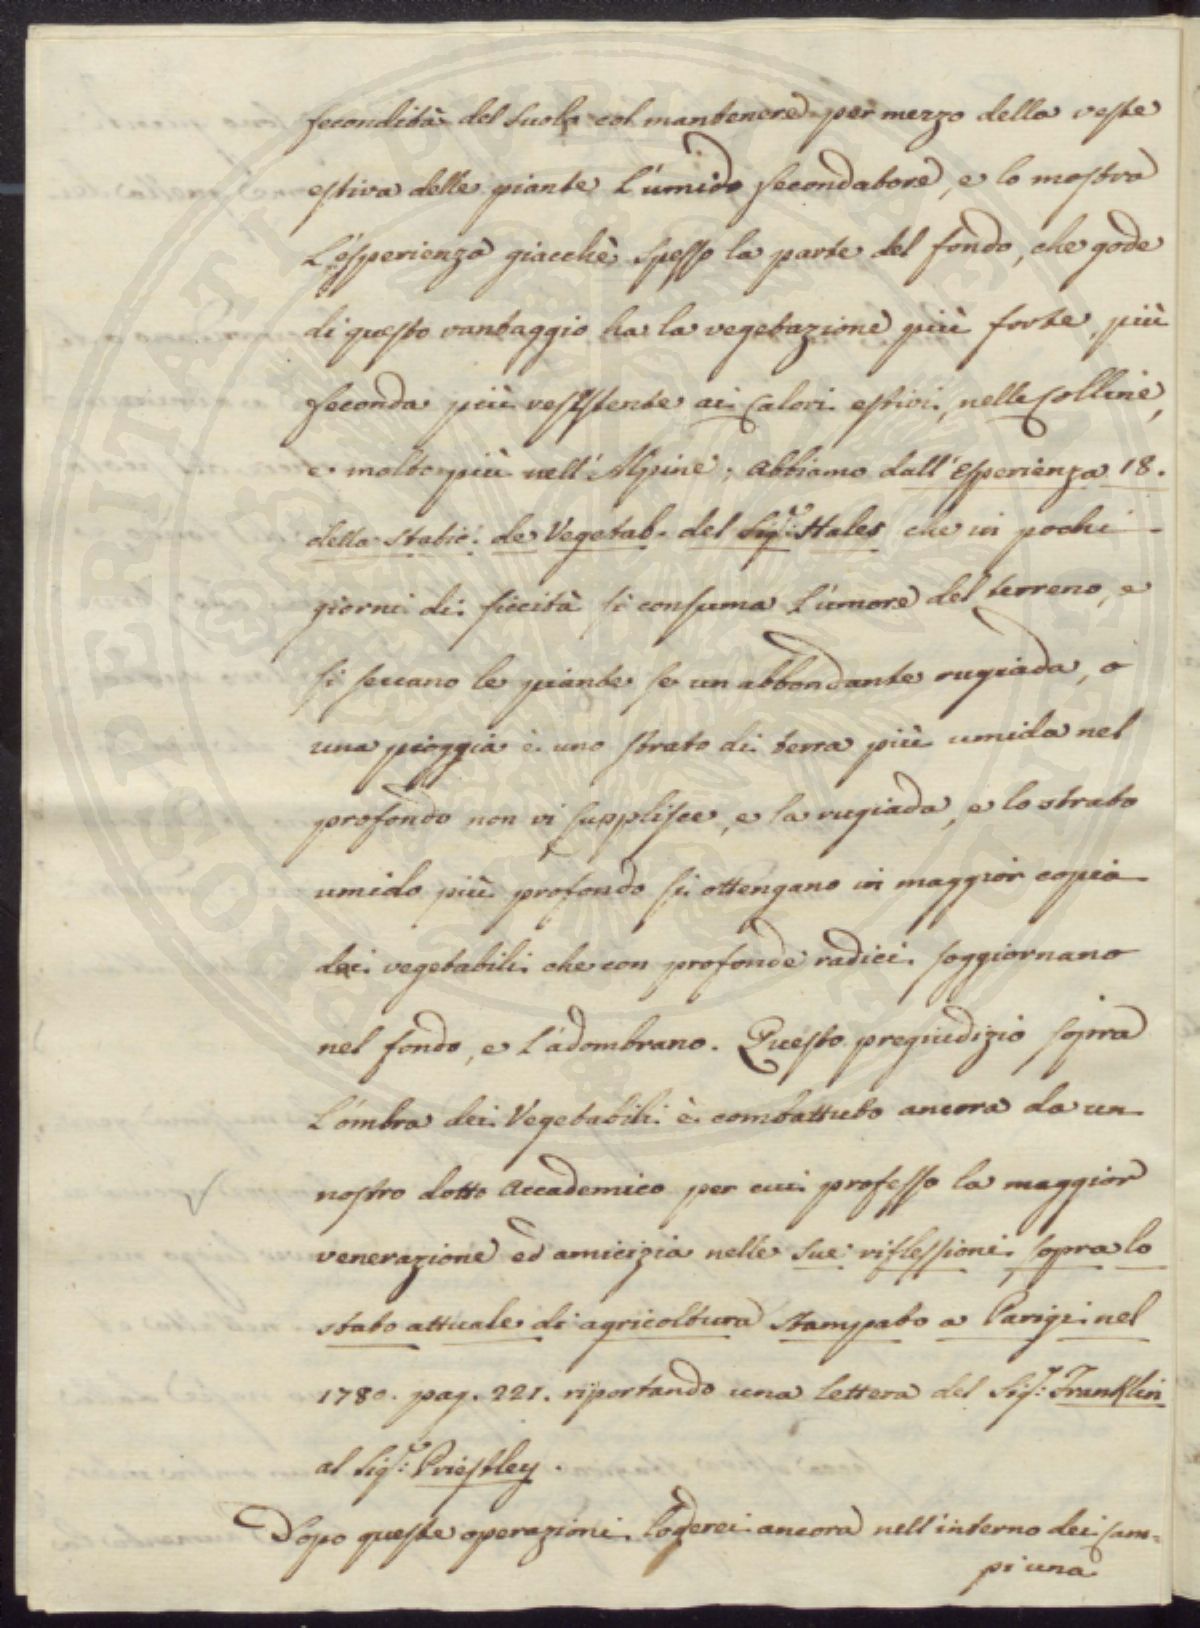 fecondità del suolo col mantenere per mezzo della veste
estiva delle piante l'umido fecondatore, e lo mostra
l'esperienza giacchè spesso la parte del fondo, che gode
di questo vantaggio ha la vegetazione più forte, più
feconda più resistente ai calori estivi nelle Colline,
e molto più nell'Alpine; abbiamo dall'Esperienza 18.
della Static: de Vegetab. del Sig:r Hales che in pochi
giorni di siccità si consuma l'umore del terreno, e
si seccano le piante se un abbondante rugiada, o
una pioggia è uno strato di terra più umida nel
profondo non vi supplisce, e la rugiada, e lo strato
umido più profondo si ottengano in maggior copia
dai vegetabili che con profonde radici soggiornano
nel fondo, e l'adombrano. Questo pregiudizio sopra
l'ombra dei Vegetabili è combattuto ancora da un
nostro dotto Accademico per cui professo la maggior
venerazione ed amicizia nelle sue riflessioni sopra lo
stato attuale di agricoltura stampato a Parigi nel
1780. pag. 221. riportando una lettera del Sig:r Franklin
al Sig:r Priestley.
Dopo queste operazioni loderei ancora nell'interno dei Cam-
pi una
PROSPERITATI PUBLICAE AUGENDAE